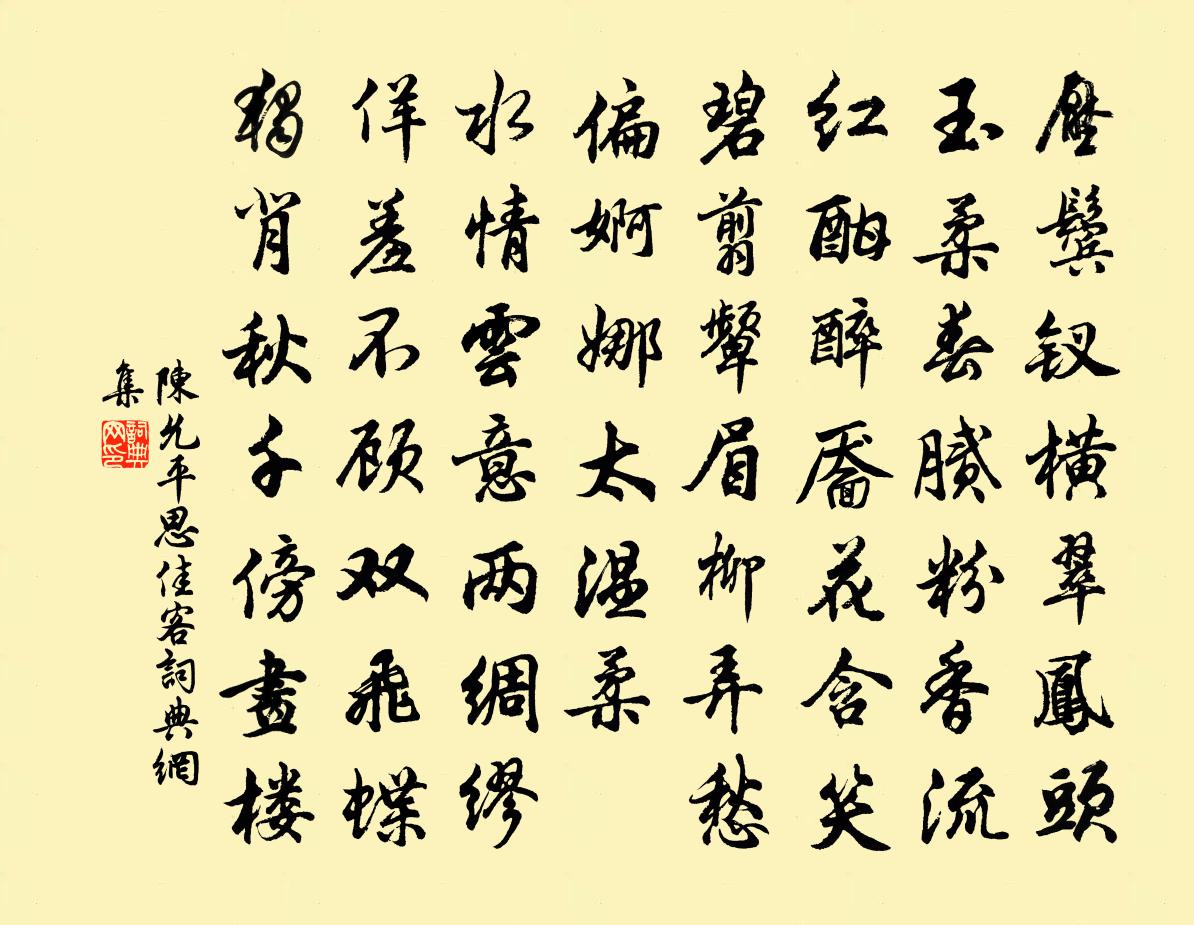 壓鬓钗橫翠鳳頭
玉柔春膩粉香流
红酣醉靥花含笑
碧翦顰眉柳弄愁
偏婀娜太温柔
水情雲意两绸缪
佯羞不顾双飛蝶
独背秋千傍畫楼
陳允平思佳客詞典網
集
詞典网印